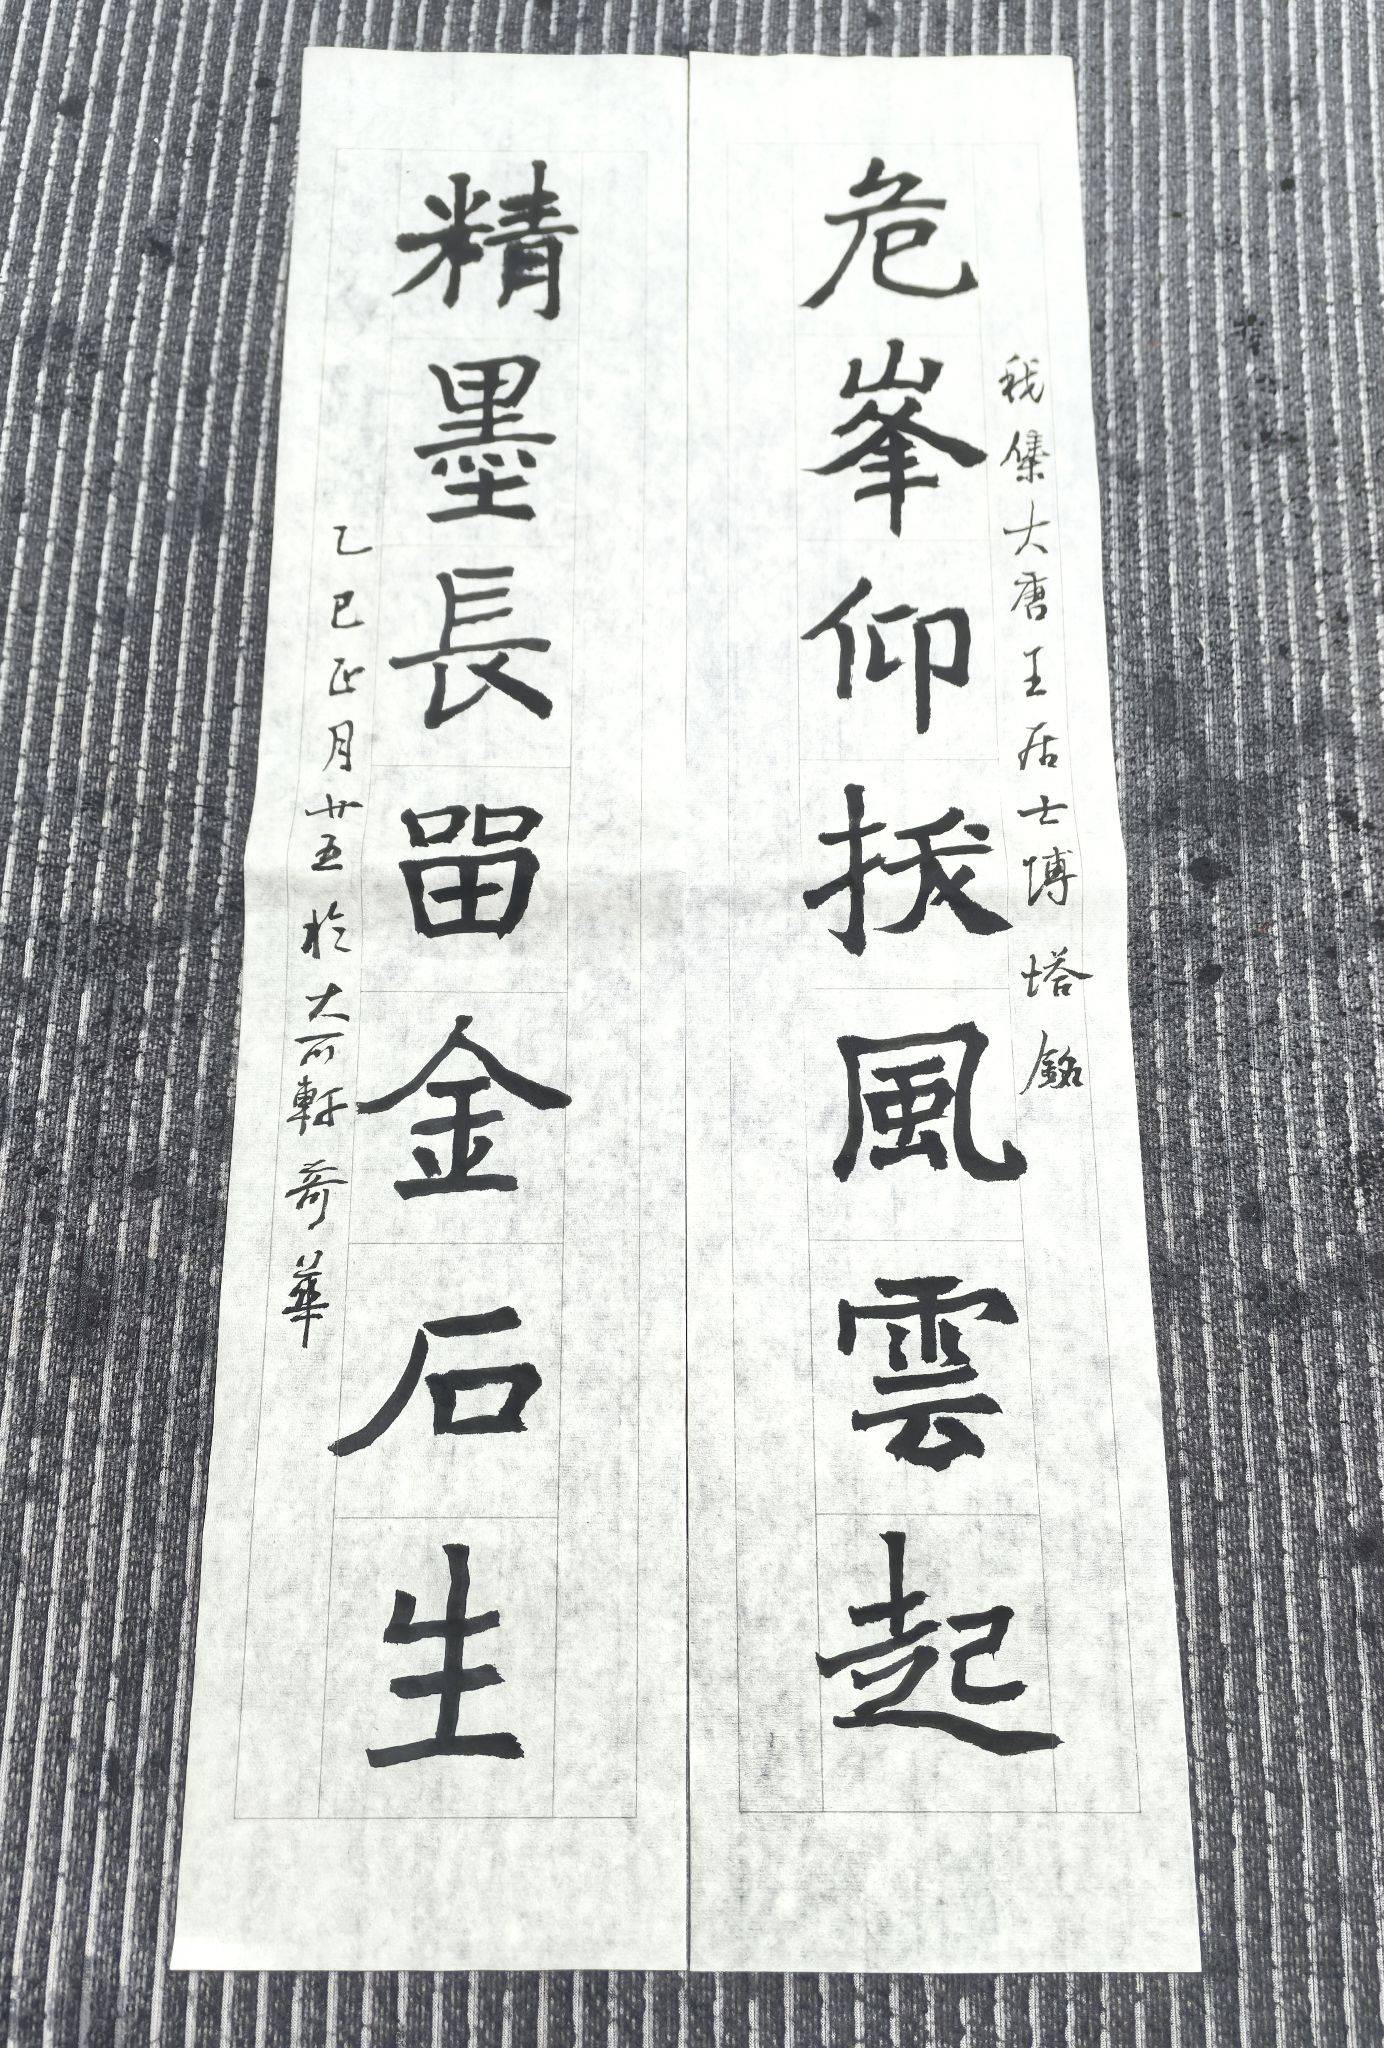 危峯仰拔風雲起
我集大唐王居士塼塔銘
精墨長畱金石生
乙巳正月廿五於大可軒奇華